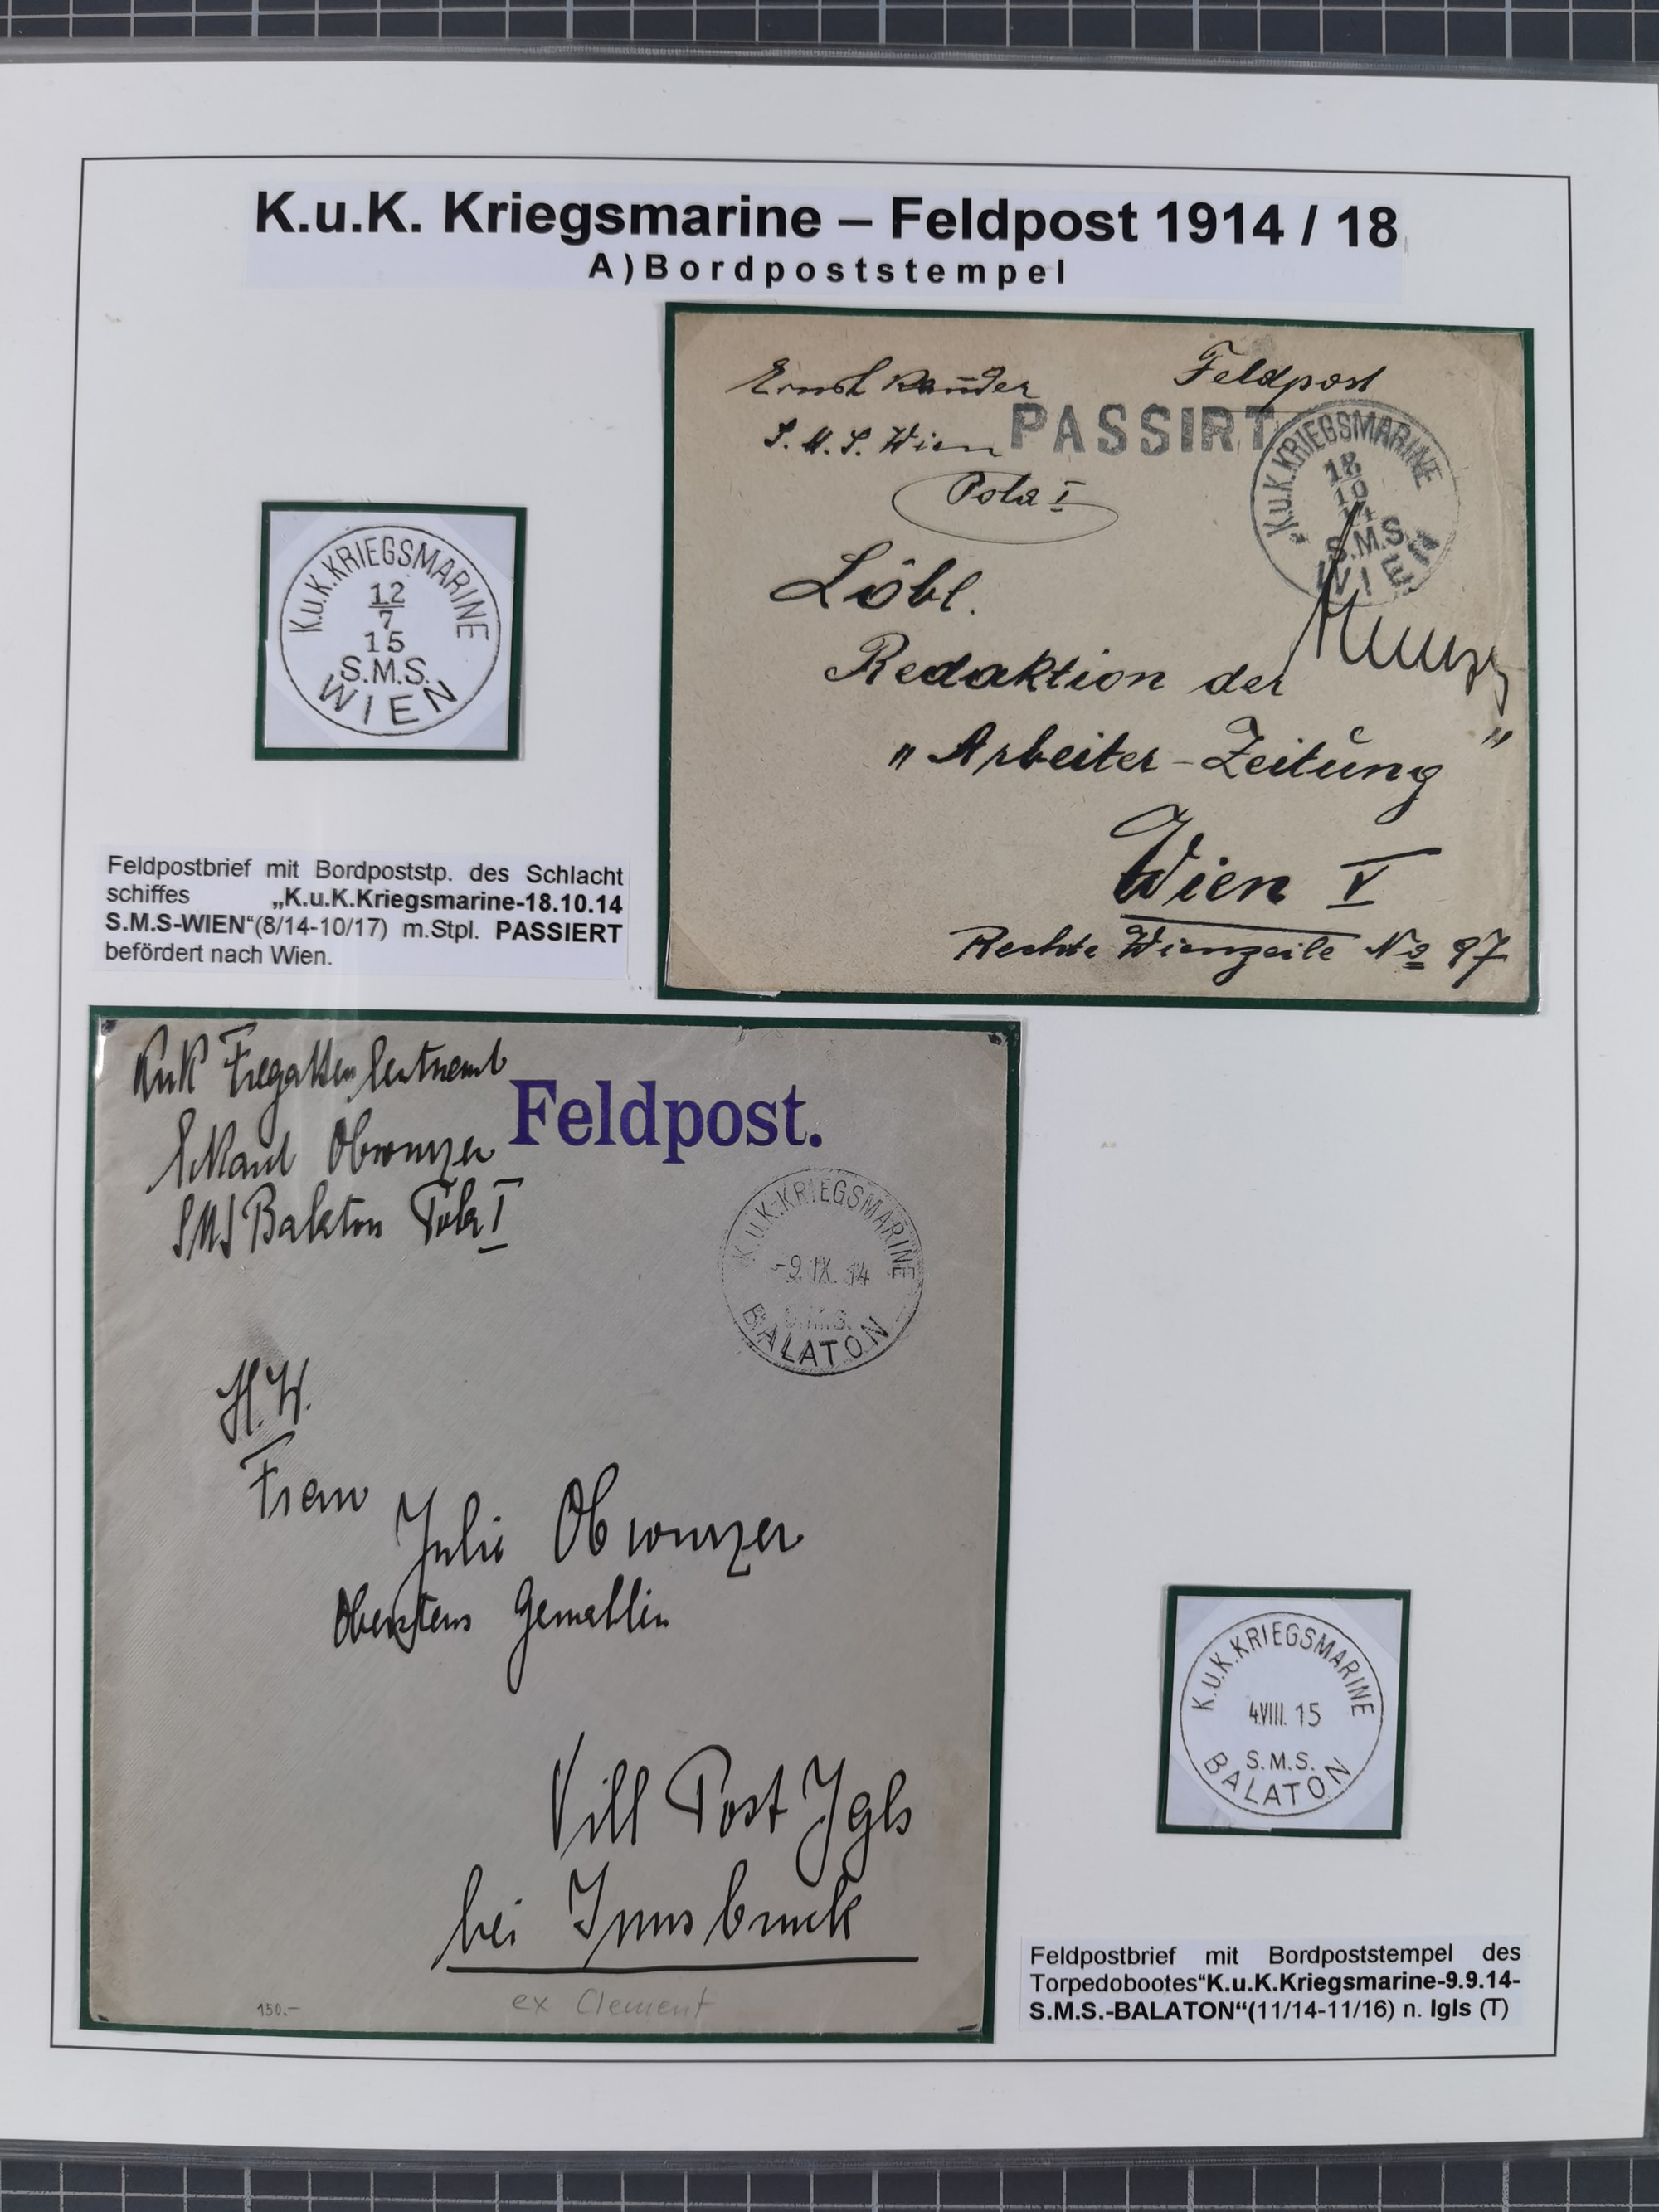 K.u.K. Kriegsmarine – Feldpost 1914 / 18
A) Bordpoststempel
Feldpost
S. M. S. Wien
PASSIRT
Pola I
K.u.K. KRIEGSMARINE
18
10
14
S.M.S.
WIEN
Löbl.
Redaktion der
„Arbeiter-Zeitung"
Wien V
Rechte Wienzeile No 97
K.u.K. KRIEGSMARINE
12
7
15
S.M.S.
WIEN
Feldpostbrief mit Bordpoststp. des Schlacht
schiffes „K.u.K.Kriegsmarine-18.10.14
S.M.S-WIEN“(8/14-10/17) m.Stpl. PASSIERT
befördert nach Wien.
KuK Fregattenleutnant
Obwurzer
SMS Balaton Pola I
Feldpost.
K.u.K. KRIEGSMARINE
-9. IX. 14
S.M.S.
BALATON
H.W.
Frau
Julie Obwurzer
Oberstens Gemahlin
Vill Post Igls
bei Innsbruck
150.-
ex Clement
K.u.K. KRIEGSMARINE
4.VIII. 15
S.M.S.
BALATON
Feldpostbrief mit Bordpoststempel des
Torpedobootes“K.u.K.Kriegsmarine-9.9.14-
S.M.S.-BALATON“(11/14-11/16) n. Igls (T)